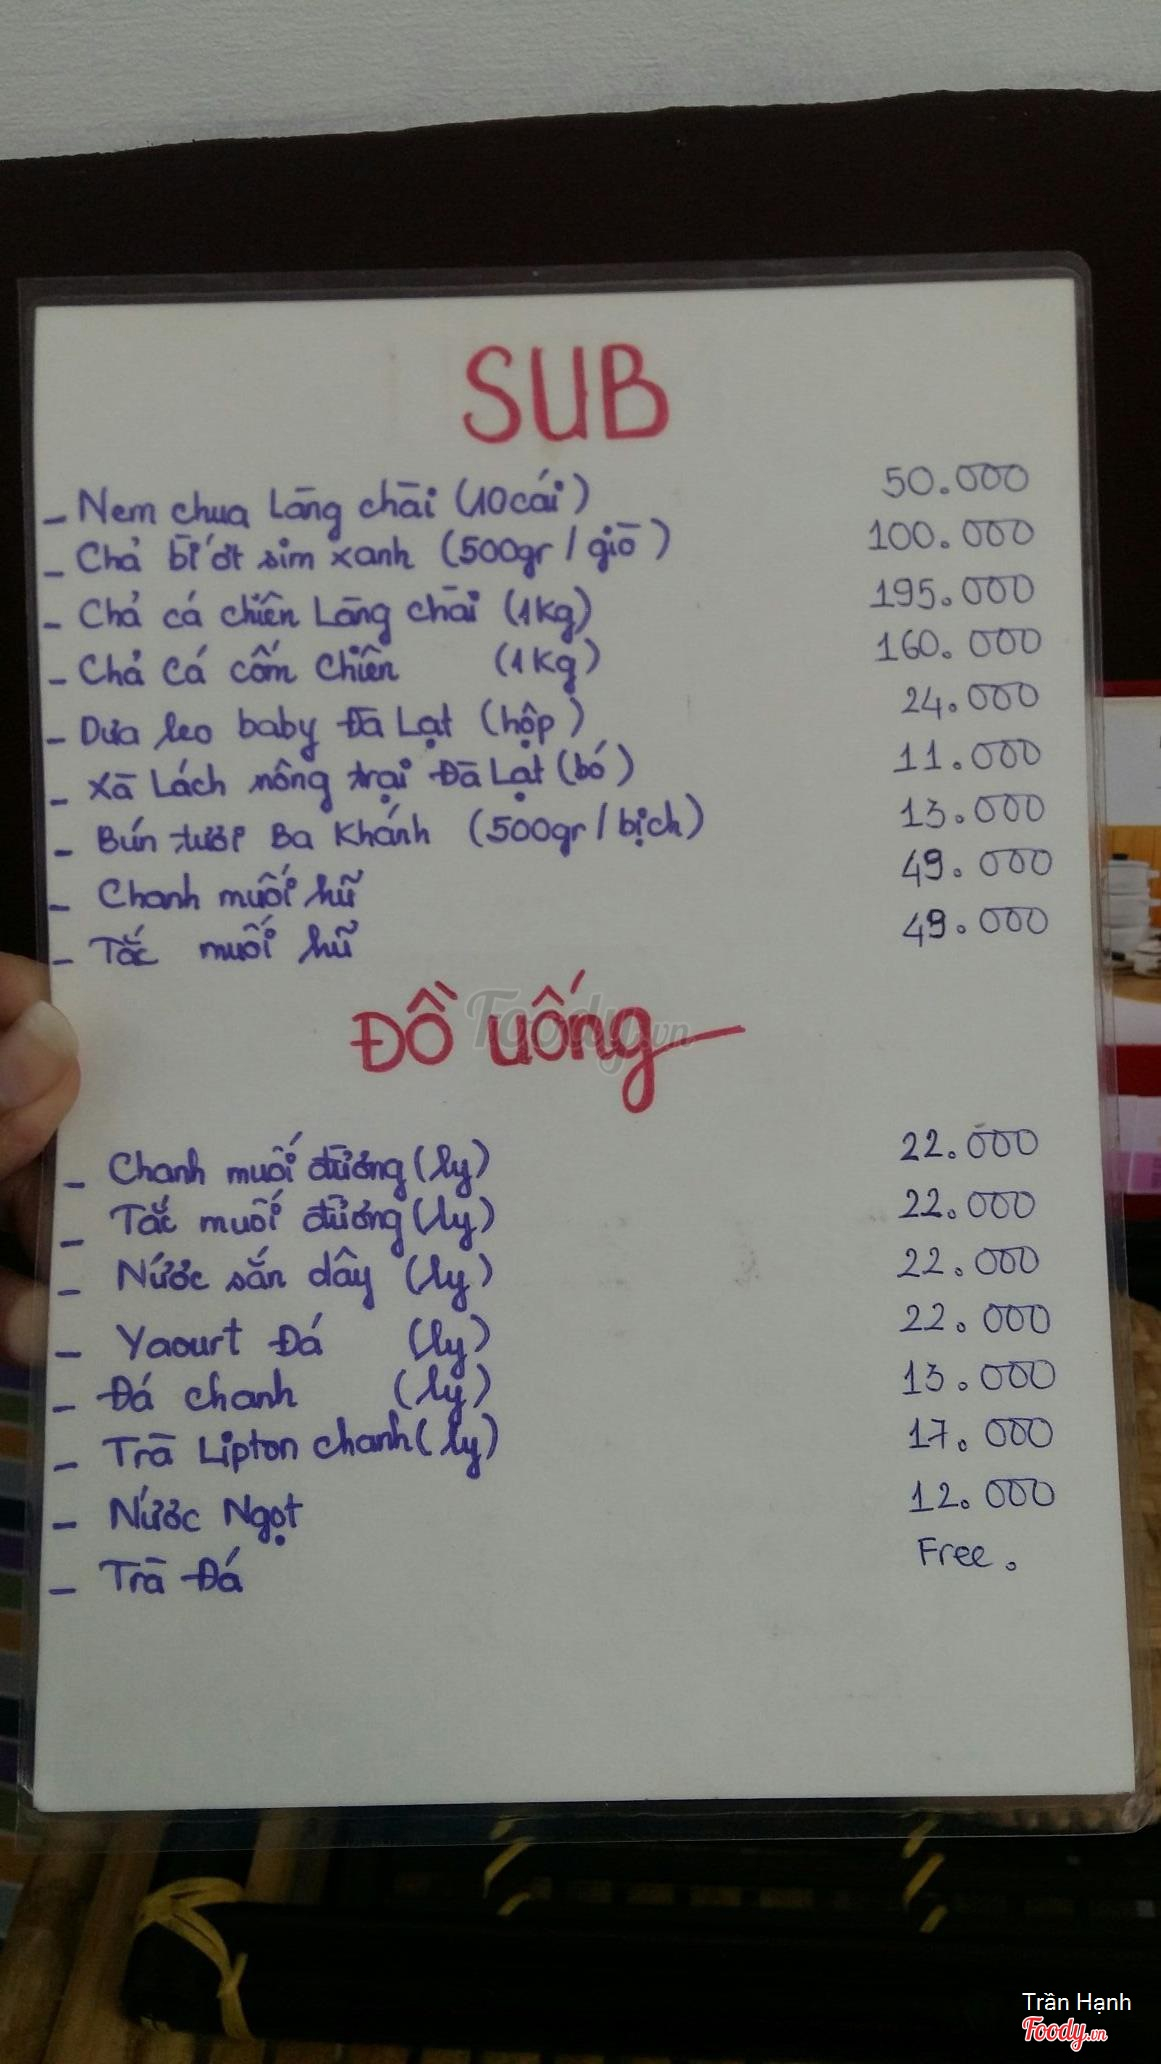 SUB
- Nem chua Làng chài (10 cái) 50.000
- Chả bì ớt sim xanh (500gr / giò) 100.000
- Chả cá chiên Làng chài (1Kg) 195.000
- Chả Cá cốm chiên (1Kg) 160.000
- Dưa leo baby Đà Lạt (hộp) 24.000
- Xà Lách nông trại Đà Lạt (bó) 11.000
- Bún tươi Ba Khánh (500gr / bịch) 13.000
- Chanh muối hũ 49.000
- Tắc muối hũ 49.000
Đồ uống
- Chanh muối đường (ly) 22.000
- Tắc muối đường (ly) 22.000
- Nước sắn dây (ly) 22.000
- Yaourt Đá (ly) 22.000
- Đá chanh (ly) 13.000
- Trà Lipton chanh (ly) 17.000
- Nước Ngọt 12.000
- Trà Đá Free.
Foody.vn
Trần Hạnh
Foody.vn